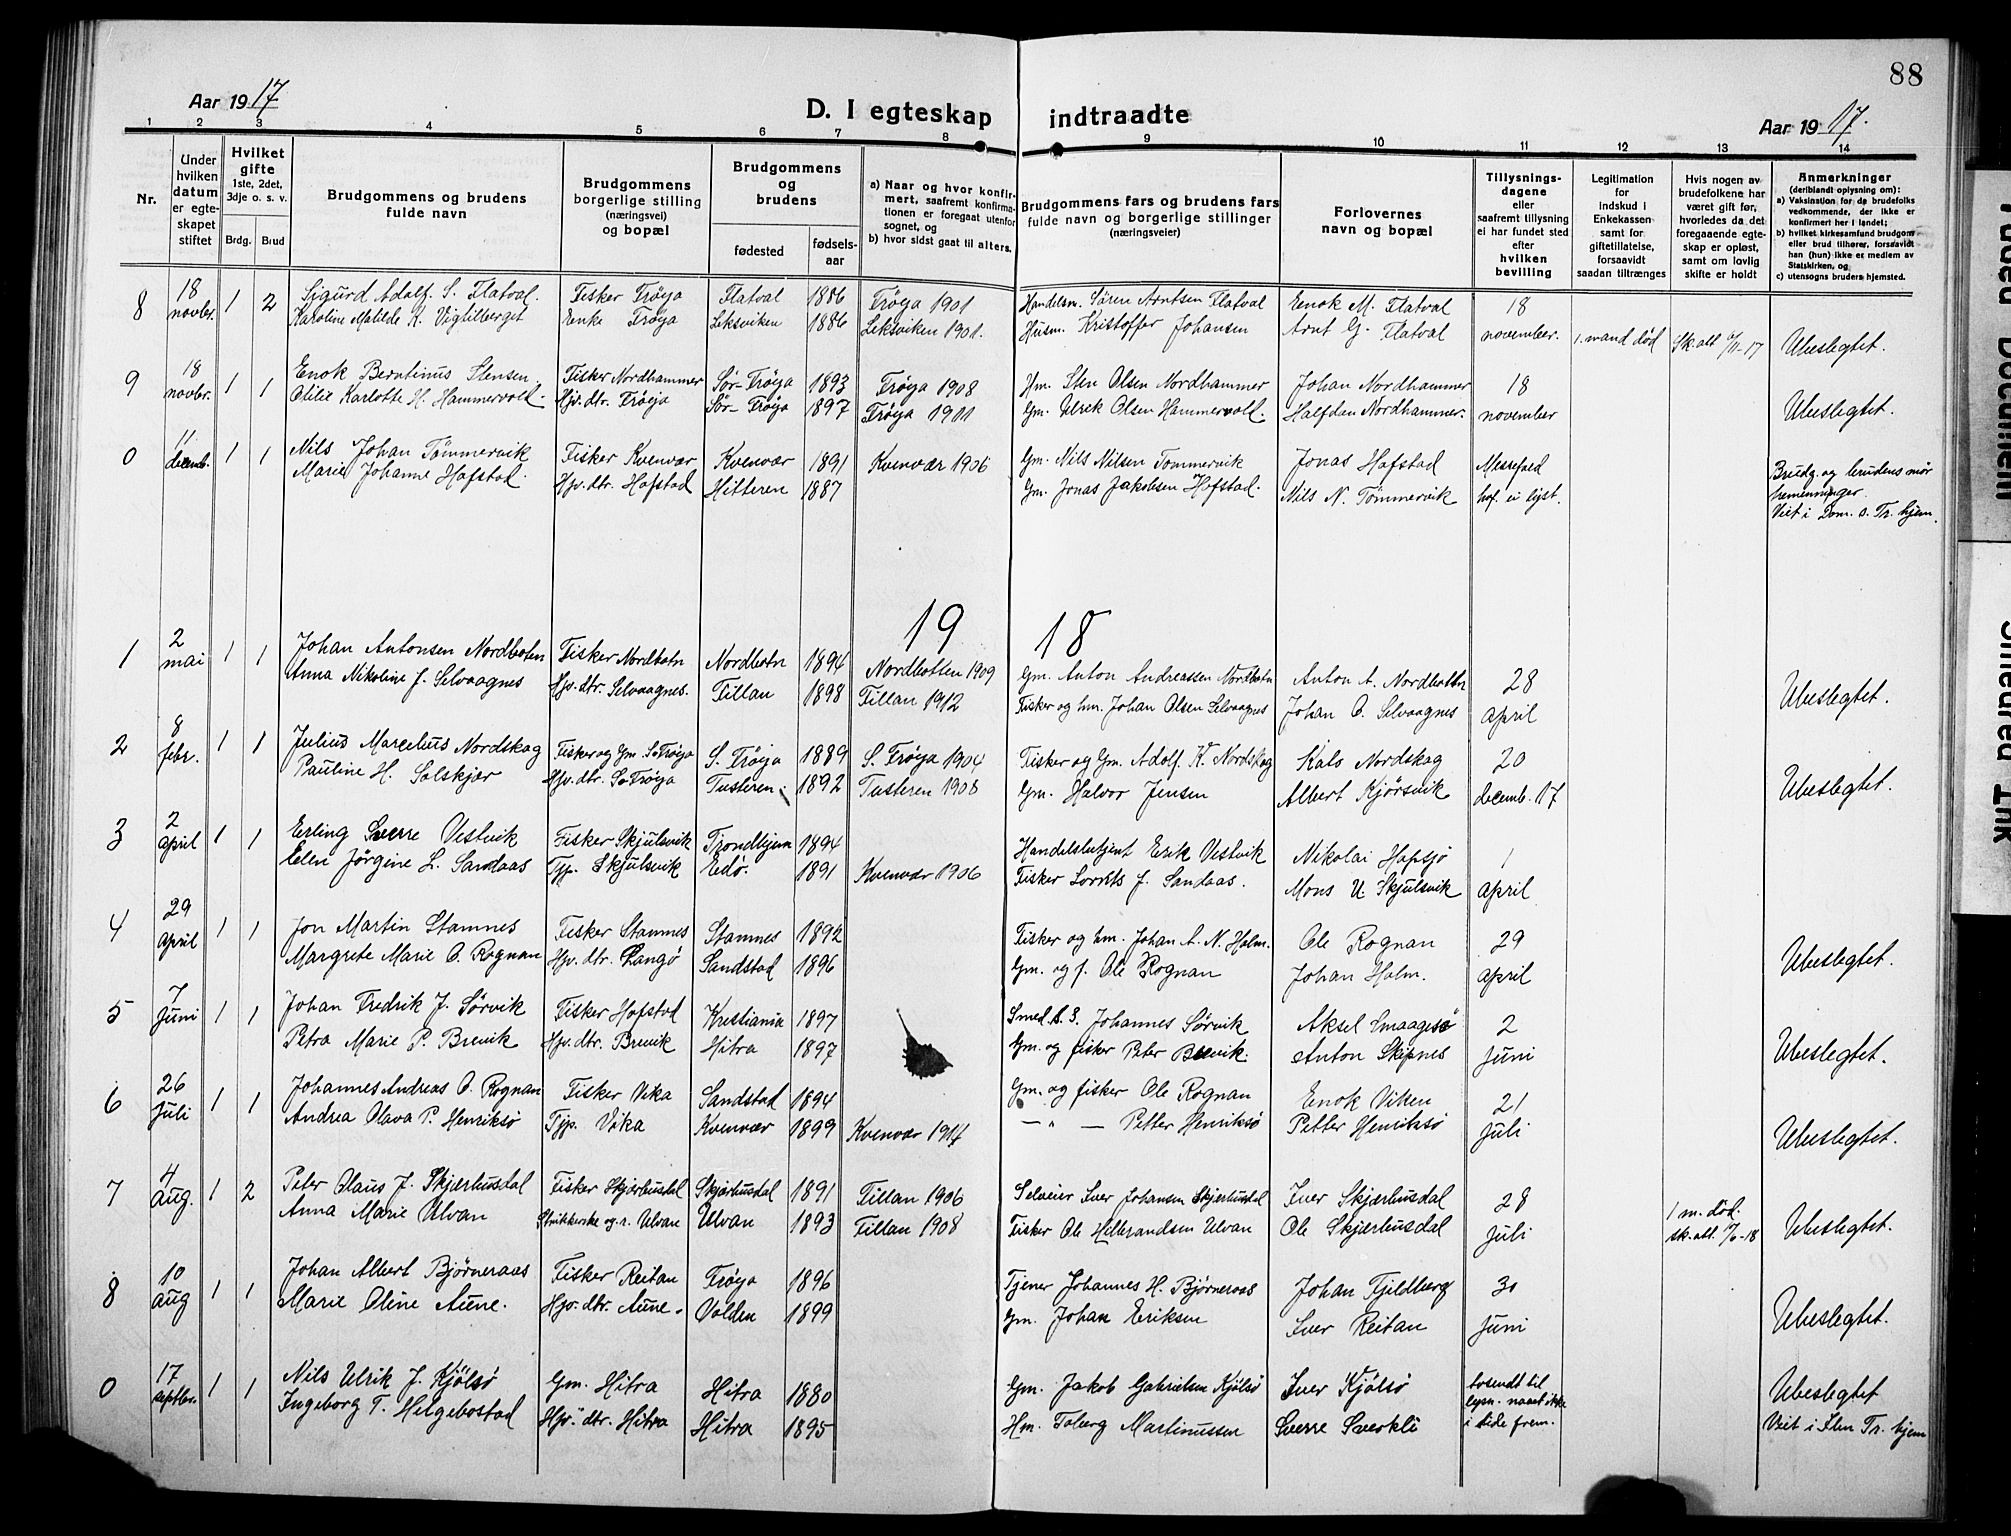 88
Aar 1917
D. I egteskap indtraadte
Aar 1917.
1 2 3 4 5 6 7 8 9 10 11 12 13 14
Nr.
Under hvilken datum er egte-skapet stiftet
Hvilket gifte 1ste, 2det, 3dje o. s. v.
Brdg. Brud
Brudgommens og brudens fulde navn
Brudgommens borgerlige stilling (næringsvei) og bopæl
Brudgommens og brudens
fødested
fødsels-aar
a) Naar og hvor konfir-mert, saafremt konfirma-tionen er foregaat utenfor sognet, og
b) hvor sidst gaat til alters.
Brudgommens fars og brudens fars fulde navn og borgerlige stillinger (næringsveier)
Forlovernes navn og bopæl
Tillysnings-dagene eller saafremt tillysning ei har fundet sted efter hvilken bevilling
Legitimation for indskud i Enkekassen samt for giftetillatelse, forsaavidt saadan tiltrænges
Hvis nogen av brudefolkene har været gift før, hvorledes da det foregaaende egte-skap er opløst, samt om lovlig skifte er holdt
Anmerkninger (deriblandt oplysning om):
a) Vaksination for de brudefolks vedkommende, der ikke er konfirmert her i landet;
b) hvilket kirkesamfund brudgom eller brud tilhører, forsaavidt han (hun) ikke er medlem av Statskirken, og
c) utensogns bruders hjemsted.
8 18 novbr. 1 2 Sigurd Adolf S. Flatval. Fisker Frøya Flatval 1886 Frøya 1901 Handelsm. Søren Arntsen Flatval Enok M. Flatval 18
Karoline Matilde K. Vigtilberget Enke Frøya Leksviken 1886 Leksviken 1901. Husm. Kristoffer Johansen Arnt G. Flatval november. 1. mand død Sk. att 6/11-17 Ubeslegtet.
9 18 novbr. 1 1 Enok Berntinus Stensen Fisker Nordhammer Sør-Frøya 1893 Frøya 1908 Hm. Sten Olsen Nordhammer Johan Nordhammer 18
Otilie Karlotte H. Hammervold. Hjv. dtr. Frøya Sør-Frøya 1897 Frøya 1911 Gm. Ulrik Olsen Hammervold. Halfdan Nordhammer. november Ubeslegtet.
0 11 decemb. 1 1 Nils Johan Tömmervik Fisker Kvenvær Kvenvær 1891 Kvenvær 1906 Gm. Nils Nilsen Tommervik Jonas Hofstad Messefald
Marie Johanne Hofstad. Hjv. dtr. Hofstad Hitteren 1887 Gm. Jonas Jakobsen Hofstad. Nils N. Tömmervik hof. ei lyst. Brudg. og brudens mör
Viet i Dom. s. Tr. hjem.
19 18
1 2 mai 1 1 Johan Antonsen Nordbotn Fisker Nordbotn Nordbotn 1894 Nordbotten 1909 Gm. Anton Andreassen Nordbotn Anton A. Nordbottn 28
Anna Nikoline J. Selvaagnes Hjv. dtr. Selvaagnes. Fillan 1898 Fillan 1912 Fisker og hm. Johan Olsen Selvaagnes Johan O. Selvaagnes April Ubeslegtet.
2 8 febr. 1 1 Julius Marcelius Nordskag Fisker og Gm. S. Frøya S. Frøya 1889 S. Frøya 1904 Fisker og Gm. Adolf K. Nordskag Kals Nordskag 20
Pauline H. Solskjær Hjv. dtr. S. Frøya Tusteren. 1892 Tusteren 1908 Gm. Halvor Jensen Albert Kjörsvik decemb. 17 Ubeslegtet.
3 2 april 1 1 Erling Sverre Vestvik Fisker Skjulsvik Trondhjem 1894 Handelsbetjent Erik Vestvik Nikolai Hopsjø 1
Elen Jörgine L. Sandaas Tjp. Skjulsvik Edø. 1891 Kvenvær 1906 Fisker Lorents J. Sandaas. Mons U. Skjulsvik April
4 29 april 1 1 Jon Martin Stamnes Fisker Stamnes Stamnes 1892 Fisker og hm. Johan A. N. Holm. Ole Rognan 29
Margrete Marie O. Rognan Hjv. dtr. Langö Sandstad 1896 Gm. og f. Ole Rognan Johan Holm. April Ubeslegtet.
5 7 Juni 1 1 Johan Fredrik J. Sörvik Fisker Hofstad Kristiania 1897 Smed Johannes Sörvik Aksel Smaagesö 2
Petra Marie P. Brevik Hjv. dtr. Brevik Hitra 1897 Gm. og fisker Peter Brevik. Anton Skipnes Juni Ubeslegtet.
6 26 Juli 1 1 Johannes Andreas O. Rognan Fisker Vika Sandstad 1894 Gm. og fisker Ole Rognan Enok Viken 21
Andrea Olava P. Henriksö Tjp. Vika Kvenvær 1899 Kvenvær 1914 — " — Petter Henriksö Petter Henriksö Juli Ubeslegtet.
7 4 Aug. 1 2 Peter Olaus J. Skjærhusdal Fisker Skjærhusdal Skjærhusdal 1891 Fillan 1906 Selveier Iver Johansen Skjærhusdal Iver Skjærhusdal 28 1 m. död.
Anna Marie Ulvan Ulvan Ulvan 1893 Fillan 1908 Fisker Ole Hilbrandsen Ulvan Ole Skjærhusdal Juli sk. att. 17/6-18 Ubeslegtet.
8 10 Aug 1 1 Johan Albert Bjørneraas Fisker Reitan Frøya 1896 Tjener Johannes H. Bjørneraas Johan Fjeldberg 30
Marie Oline Aune. Hjv. dtr. Aune. Valden 1899 Gm. Johan Eriksen Iver Reitan Juni Ubeslegtet.
0 17 septbr. 1 1 Nils Ulrik J. Kjölsø Gm. Hitra Hitra 1880 Gm. Jakob Gabrielsen Kjölsø Iver Kjölsø tosendt til lysn. naaet ikke i tide frem. Ubeslegtet
Ingeborg T. Helgebostad Hjv. dtr. Hitra Hitra 1895 Hm. Toberg Martinussen Sverre Sverkli Viet i Ilen Tr. hjem